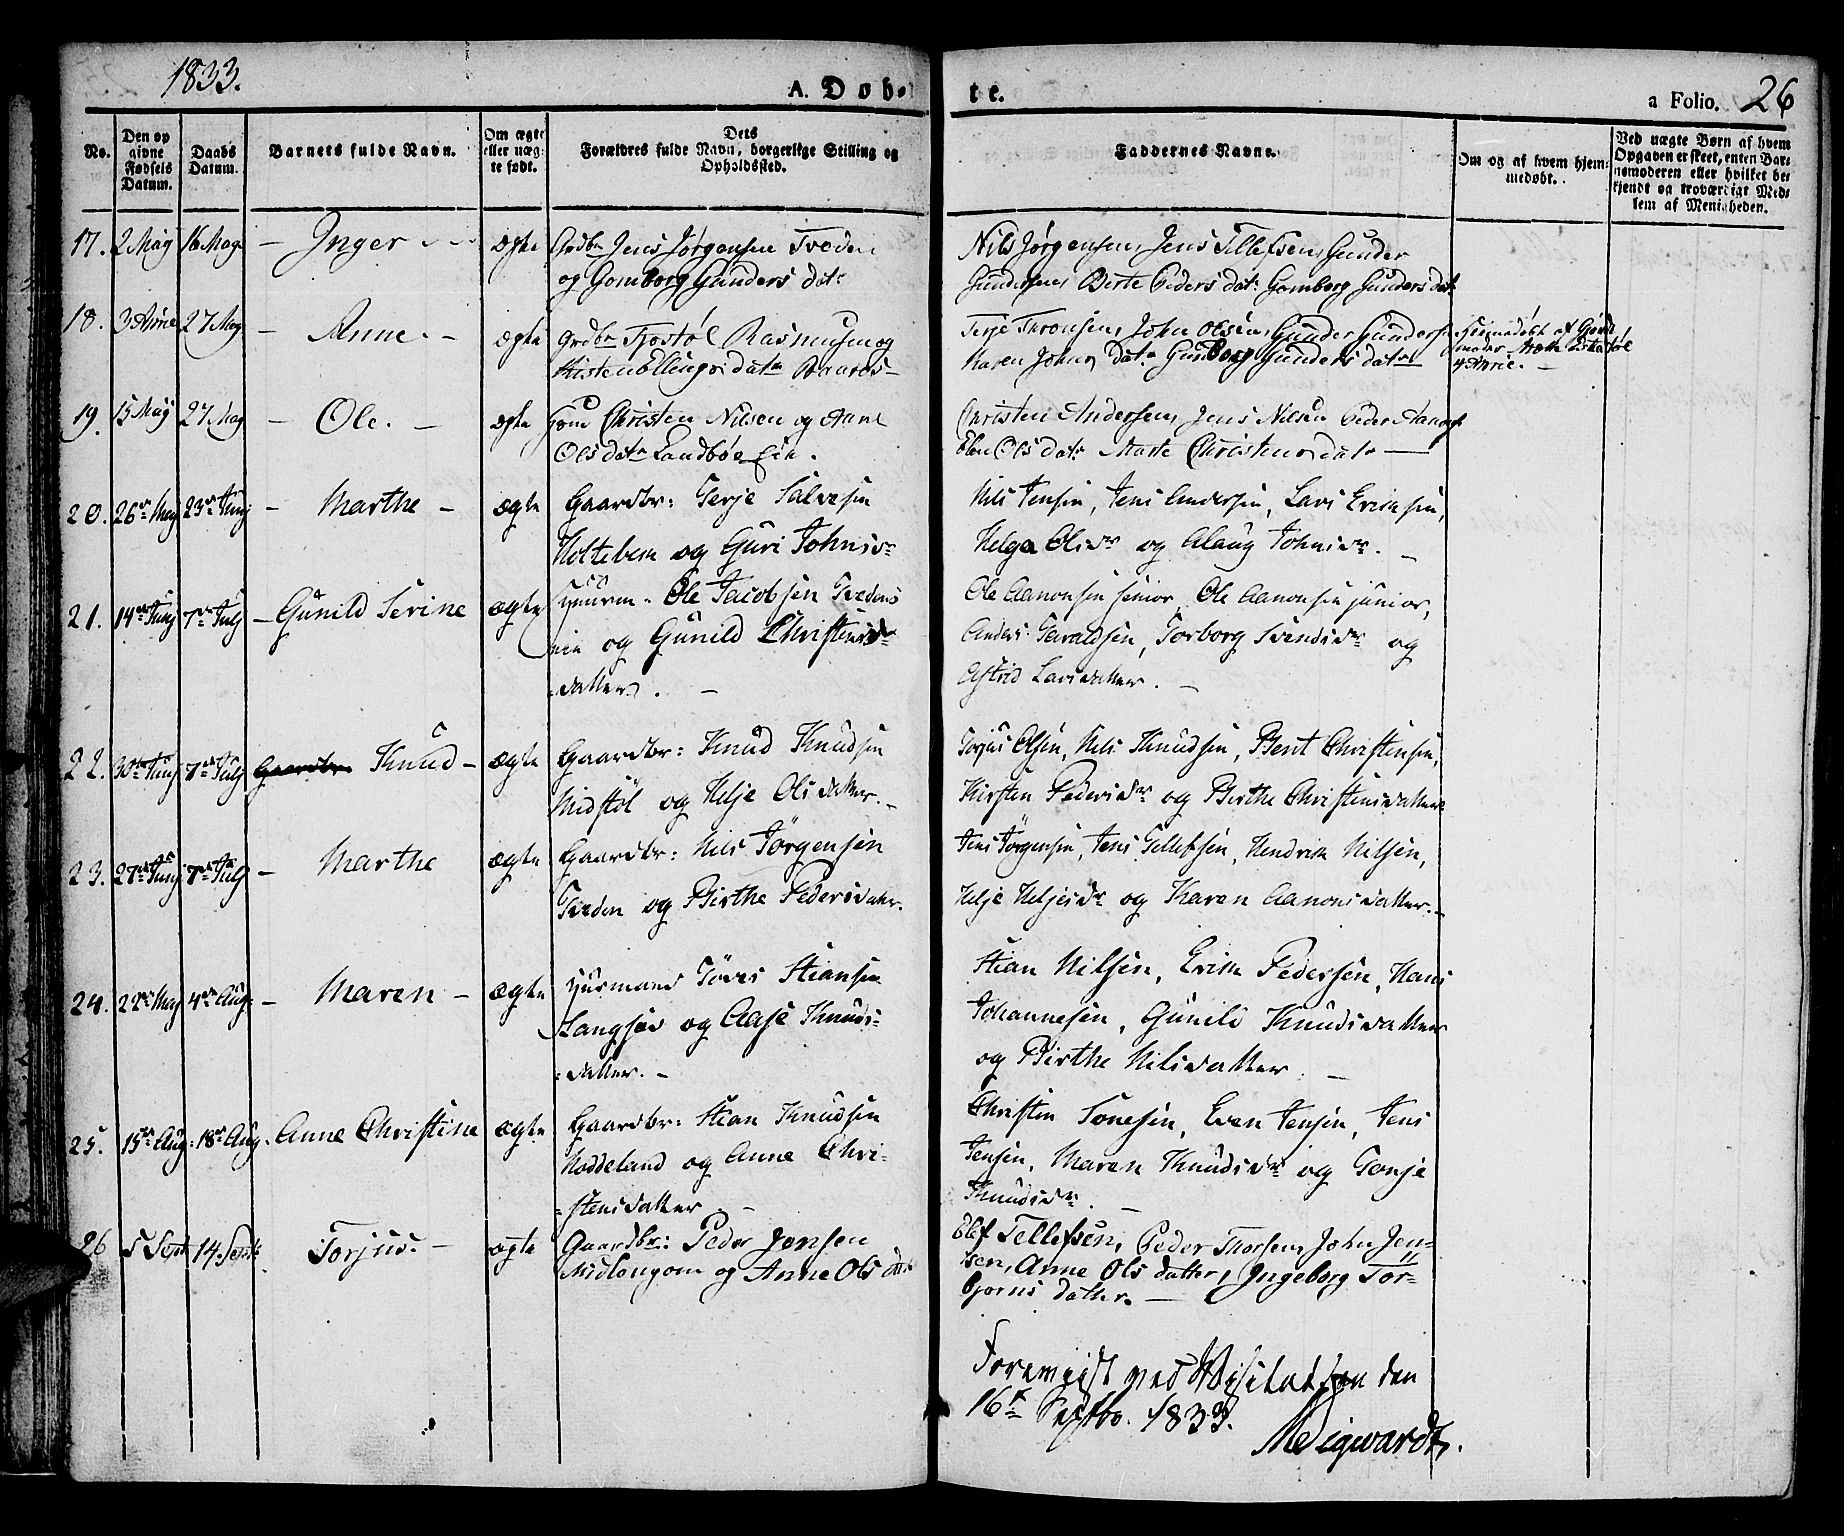 1833.
A. Døb-
te.
a Folio. 26
No.
Den op
givne
Fødsels
Datum.
Daabs
Datum.
Barnets fulde Navn.
Om ægte
eller uæg-
te født.
Dets
Forældres fulde Navn, borgerlige Stilling og
Opholdsted.
Faddernes Navne.
Om og af hvem hjem-
medøbt.
Ved uægte Børn af hvem
Opgaven er skeet, enten Bar-
nemoderen eller hvilket be-
kjendt og troværdigt Med-
lem af Menigheden.
17. 2 May 16 May - Inger - ægte Grdbr Jens Jørgensen Tveden
og Gomborg Gunders datr
Nils Jørgensen, Jens Tellefsen, Gunder
Gundersen, Berte Peders datr Gomborg Gunders datr
18. 27 May - Anne. - ægte Grdbr Tjostøl Rasmusen og
Kisten Ellings datr
Terje Thronsen, John Olsen, Gunder Gunders
Karen Johns datr Gunborg Gunders datr
Hiemedøbt af
19. 15 May 27 May - Ole. - ægte Christen Nilsen og
Ols datr Landbøe Eie.
Christen Andersen, Jens Nilsen Peder
Olsdatr Marte Christens datr
20. 26de May 23de Junj - Marthe - ægte Gaardbr: Terje Salvesen
Holtebek og Guri Johnsdr
Nils Jensen, Jens Andersen, Lars Eriksen,
Helga Olsdr og Aslaug Johnsdr. -
21. 14de Junj 7de Julj - Gunild Serine ægte Huusm. Ole Jacobsen Tvedens
eie og Gunild Christens-
datter. -
Ole Aanonsen senior, Ole Aanonsen junior,
Anders Taraldsen, Torborg Svendsdr og
Astrid Larsdatter. -
22. 30te Junj 7de Julj Gaardbr. Knud - ægte Gaardbr: Knud Knudsen
Midstøl og Helje Olsdatter. -
Torjus Olsen, Nils Knudsen, Bent Christensen,
Kirsten Pedersdr og Birthe Christensdatter
23. 27de Junj 7de Julj - Marthe ægte Gaardbr: Nils Jørgensen
Tveden og Birthe Pedersdatter.
Jens Jørgensen, Jens Tellefsen, Hendrik Nilsen,
Helje Heljesdr og Karen Aanonsdatter. -
24. 22de May 4de Aug. - Maren - ægte Huusmand Stiansen
Langsæv og Aase Knuds-
datter. -
Stian Nilsen, Erik Pedersen, Hans
Johannesen, Gunild Knudsdatter
og Birthe Nilsdatter. -
25. 15de Aug. 18de Aug. Anne Christine ægte Gaardbr: Stian Knudsen
Moddeland og Anne Chri-
stensdatter -
Christen Tonesen, Even Jensen, Jens
Jensen, Maren Knudsdr og Tonje
Knudsdr. -
26 5 Sept. 14. Septr Torjus. - ægte Gaardbr: Peder Jensen
Midlongom og Anne Ols datr
Olef Tellefsen, Peder Thorsen, John Jen-
sen, Anne Ols datter, Ingeborg Tor-
bjørns datter. -
Foreviist ved Visitatsen den
16de Septbr. 1833.